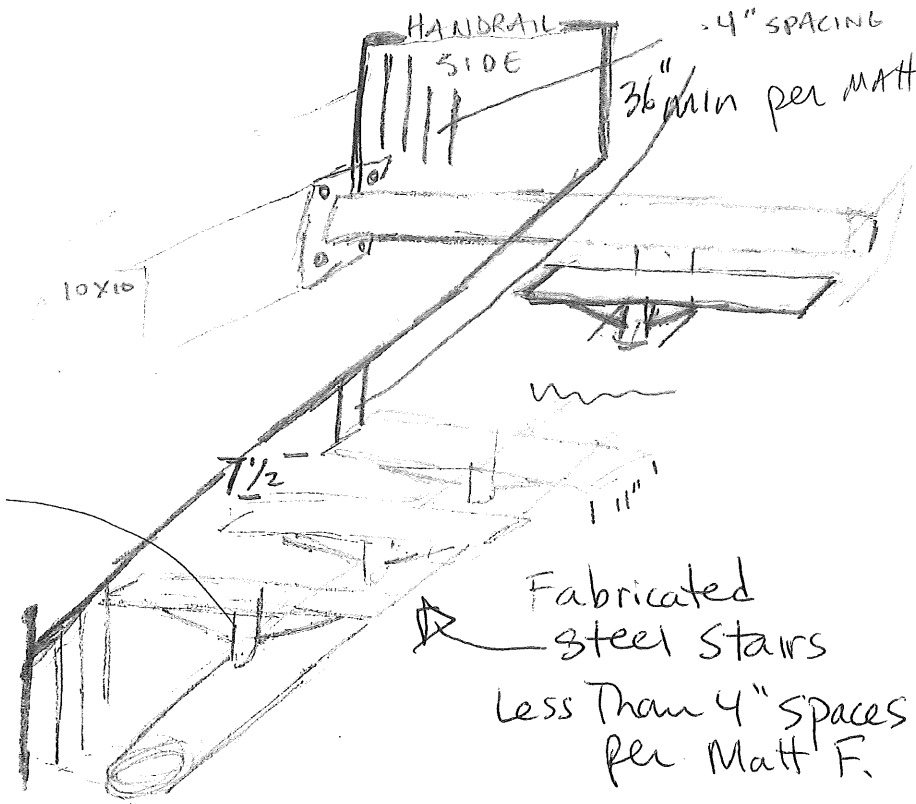 HANDRAIL
SIDE
.4" SPACING
36" min per MATT
10X10
7 1/2
11"
Fabricated
steel stairs
Less Than 4" spaces
per Matt F.